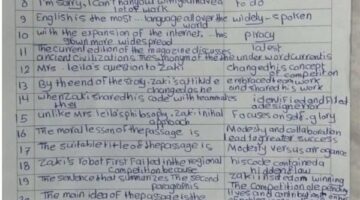 8 I'm sorry, I can't hang out with you I have a to do
lot of work
9 English is the most ... language all over the world widely-spoken
10 with the expansion of the internet, ... has piracy
grown more widespread
11 The current edition of the magazine discusses latest
ancient civilizations. The synonym of the underword current is
12 Mrs Leila's question to Zaki changed his concept of competition
13 By the end of the story, Zaki's attitude embraced teamwork
changed as he and shared his work
14 when Zaki shared his code with teammates identified and fixed
they a design error
15 unlike Mrs Leila's philosophy, Zaki's initial Focuses on self-glory
approach
16 The moral lesson of the passage is Modesty and collaboration
lead to greater success
17 The suitable title of the passage is Modesty versus arrogance
18 Zaki's robot First Failed in the regional his code contained a
competition because hidden flaw
19 The sentence that summarizes the second Zaki insisted on winning
paragraph is The Competition
The main idea of the passage is the